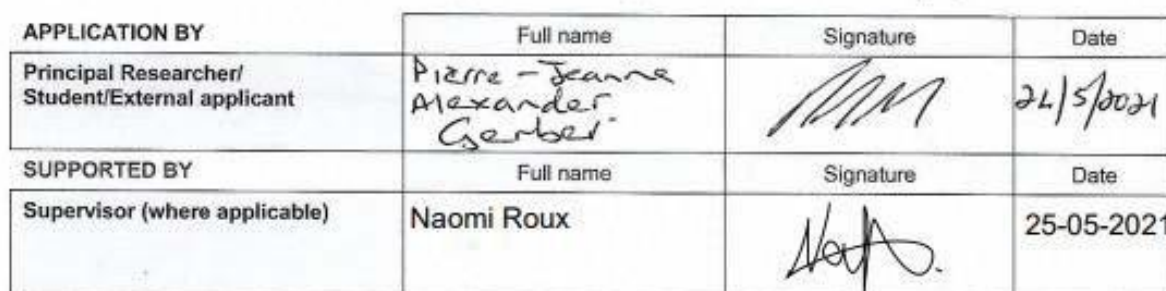 APPLICATION BY Full name Signature Date
Principal Researcher/ Pierre - Jeanne
Student/External applicant Alexander
Gerber 24/5/2021
SUPPORTED BY Full name Signature Date
Supervisor (where applicable) Naomi Roux 25-05-2021